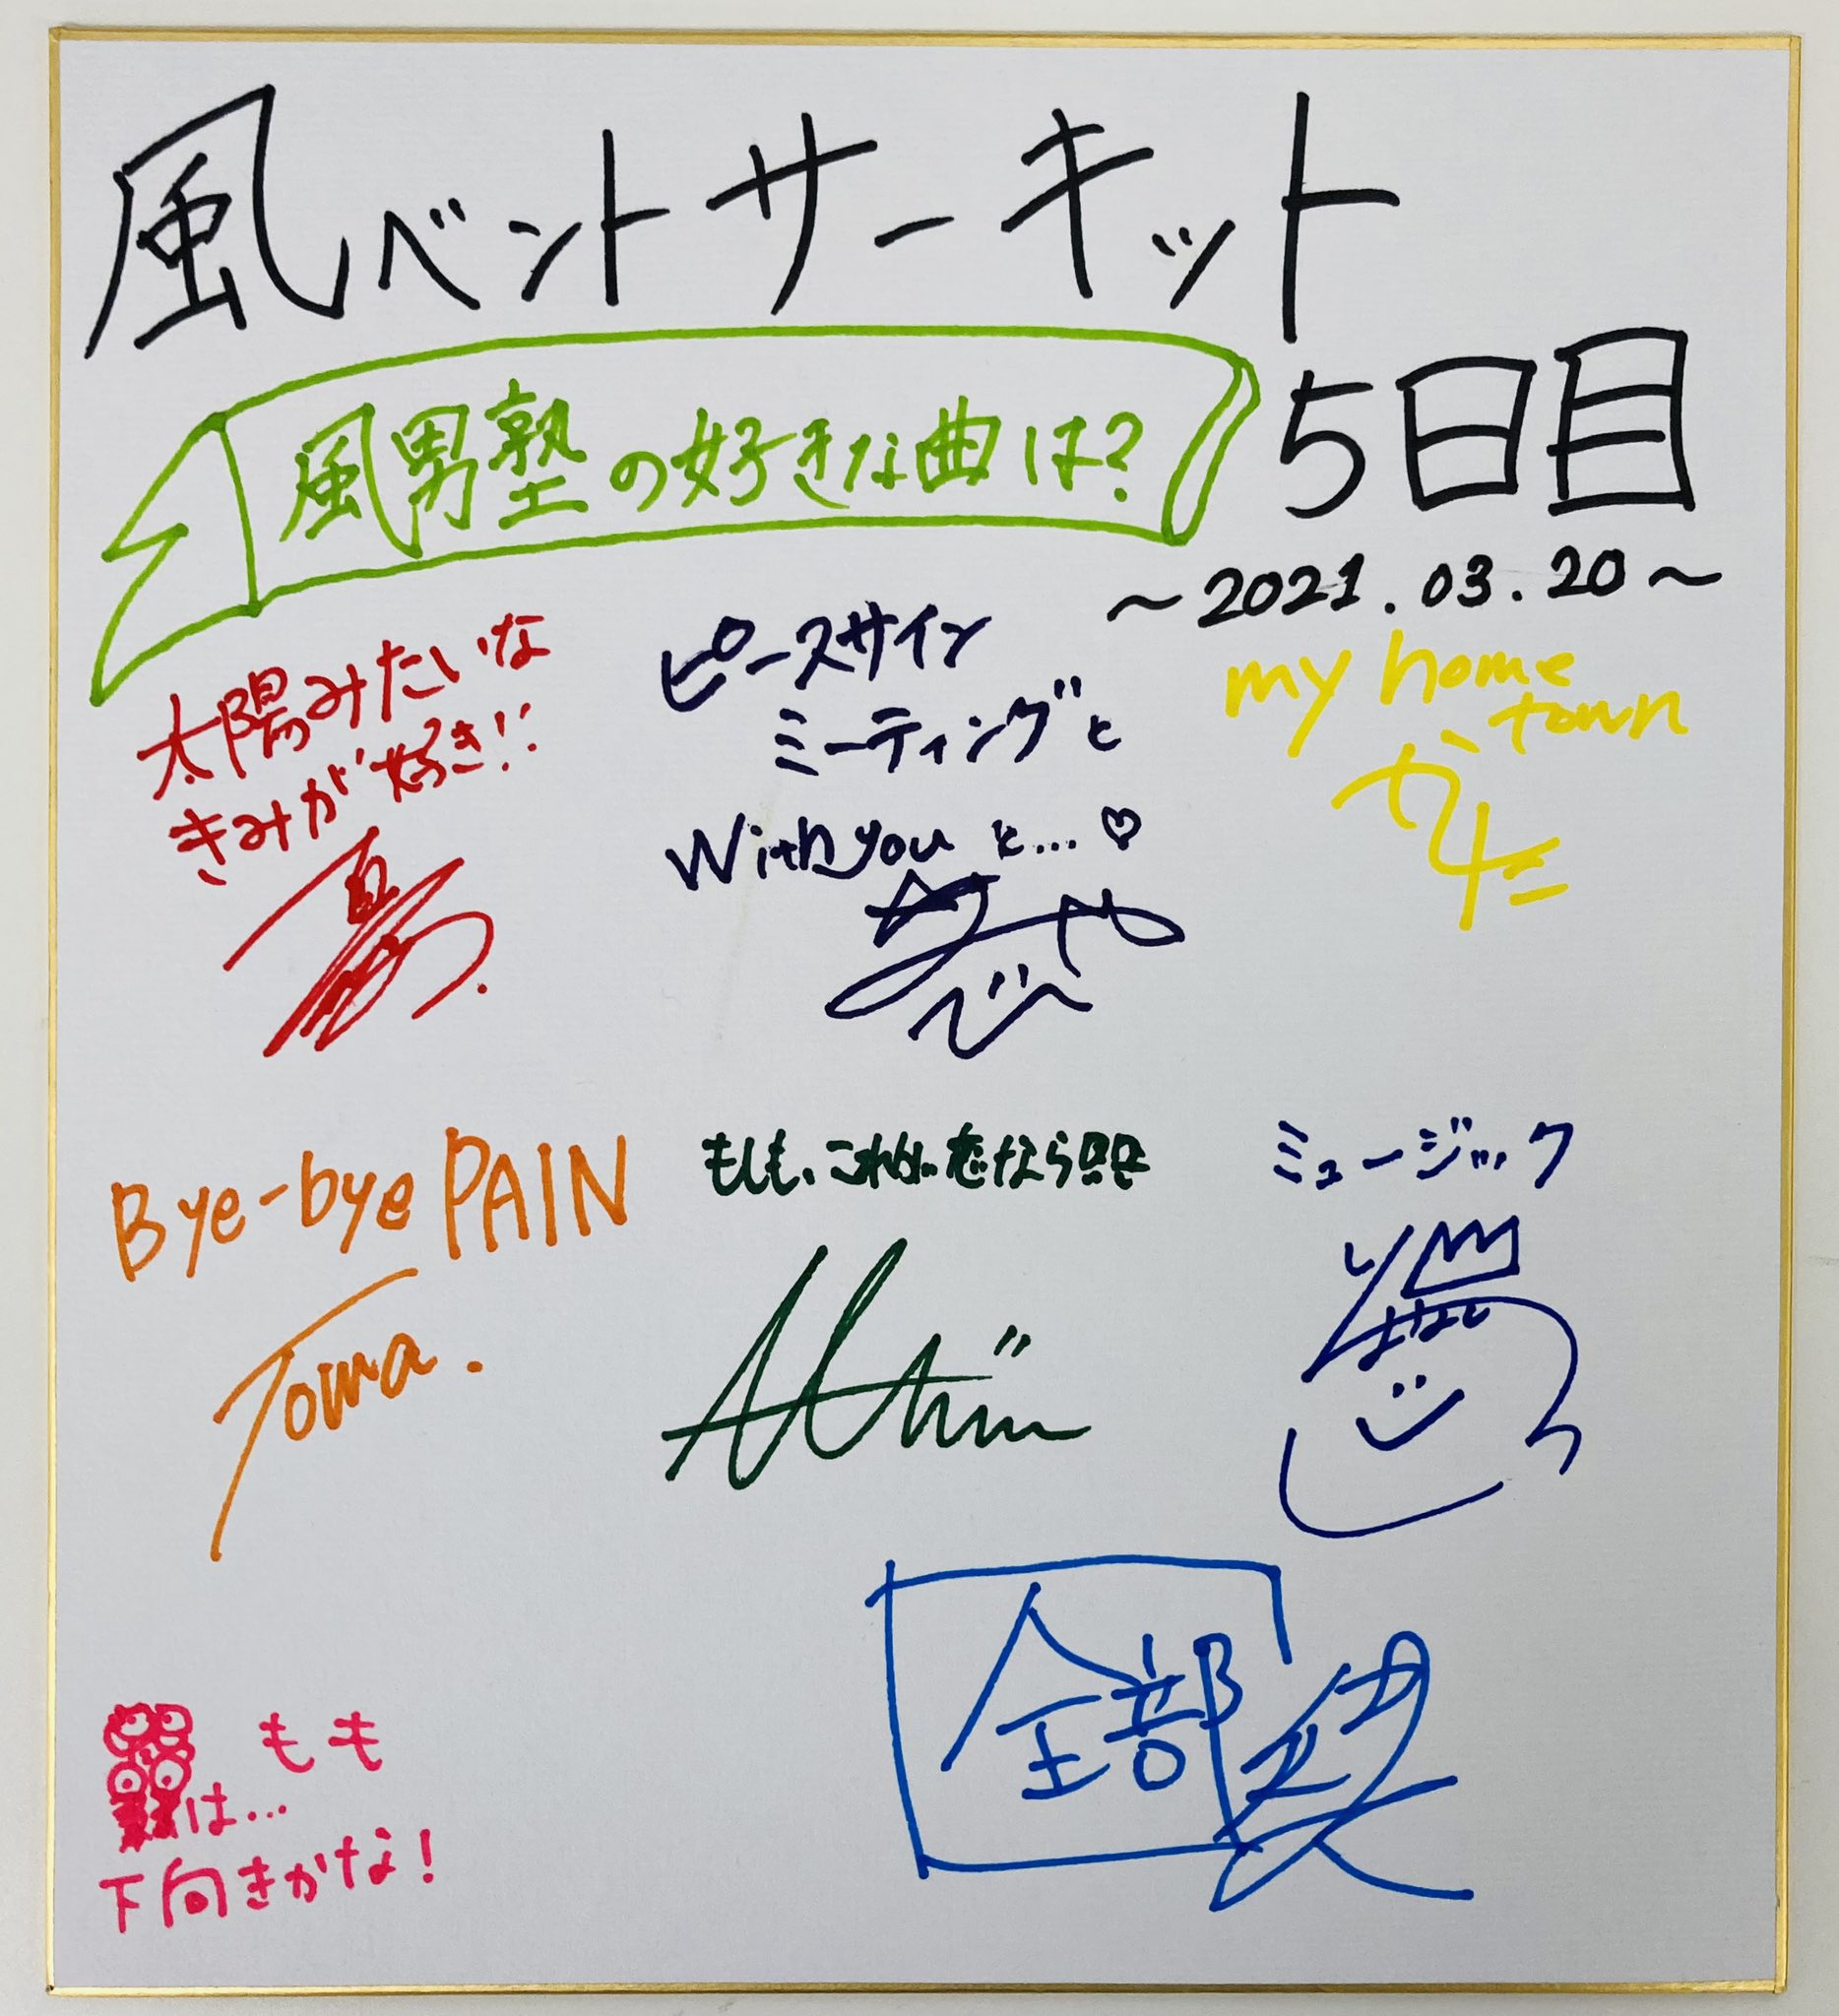 風ベントサーキット
5日目
~2021.03.20~
風男塾の好きな曲は?
太陽みたいな
きみが好き!!
ピースサイン
ミーティングと
With you と...♡
my home
town
Bye-bye PAIN
Toma.
もしも、これが恋なら
ミュージック
全部
もも
は...
下向きかな!